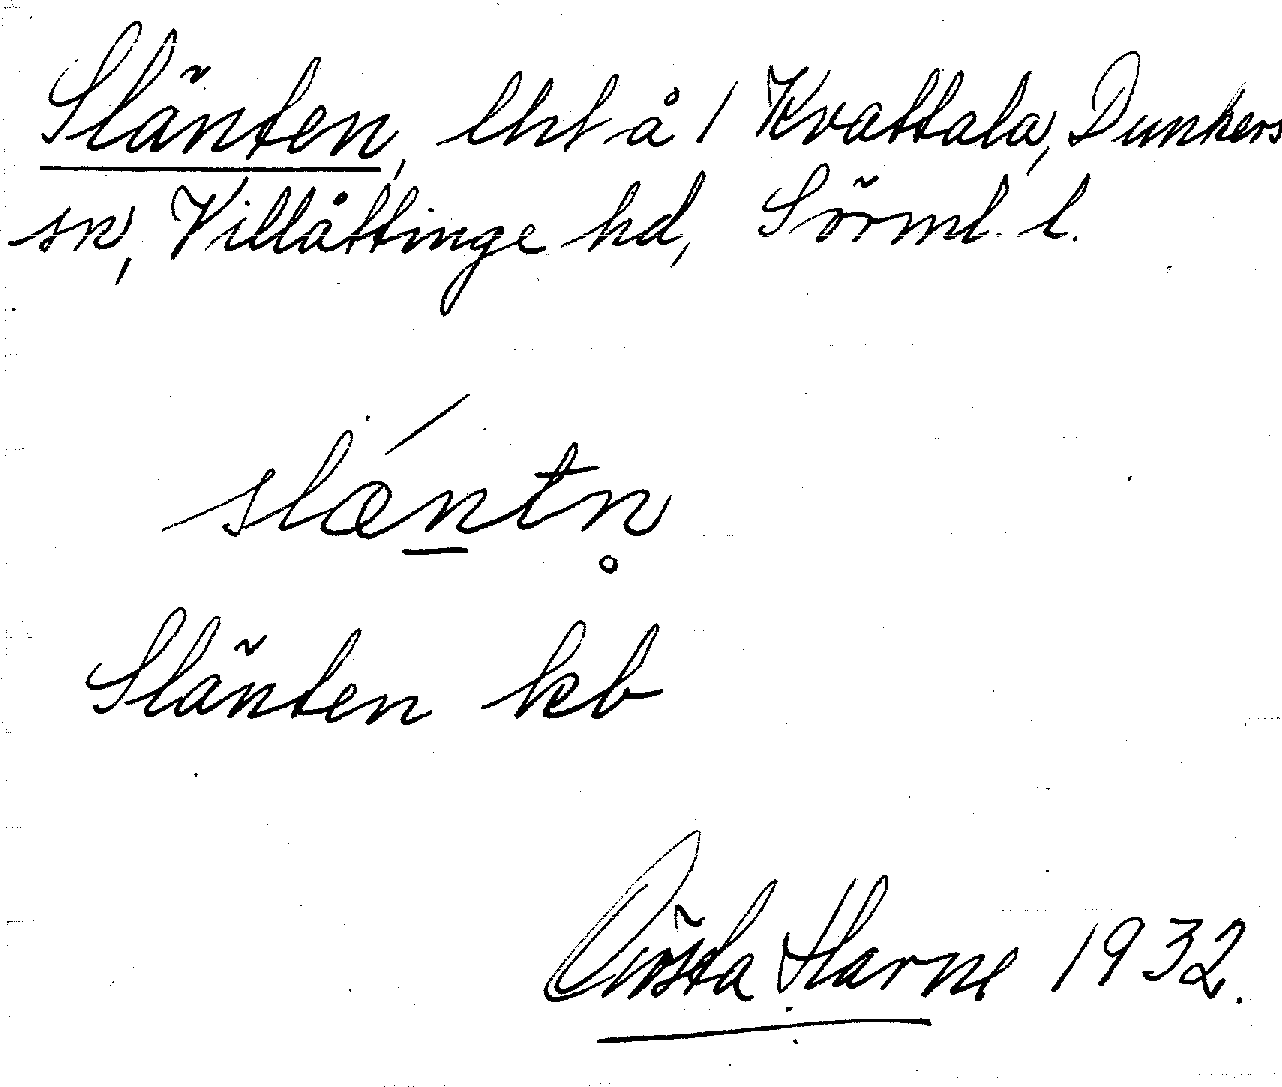 Slänten, lht å 1 Kvattala, Dunkers
sn, Villåttinge hd, Sörml. l.
slǽn̲tn̥
Slänten kb
Gösta Harne 1932.